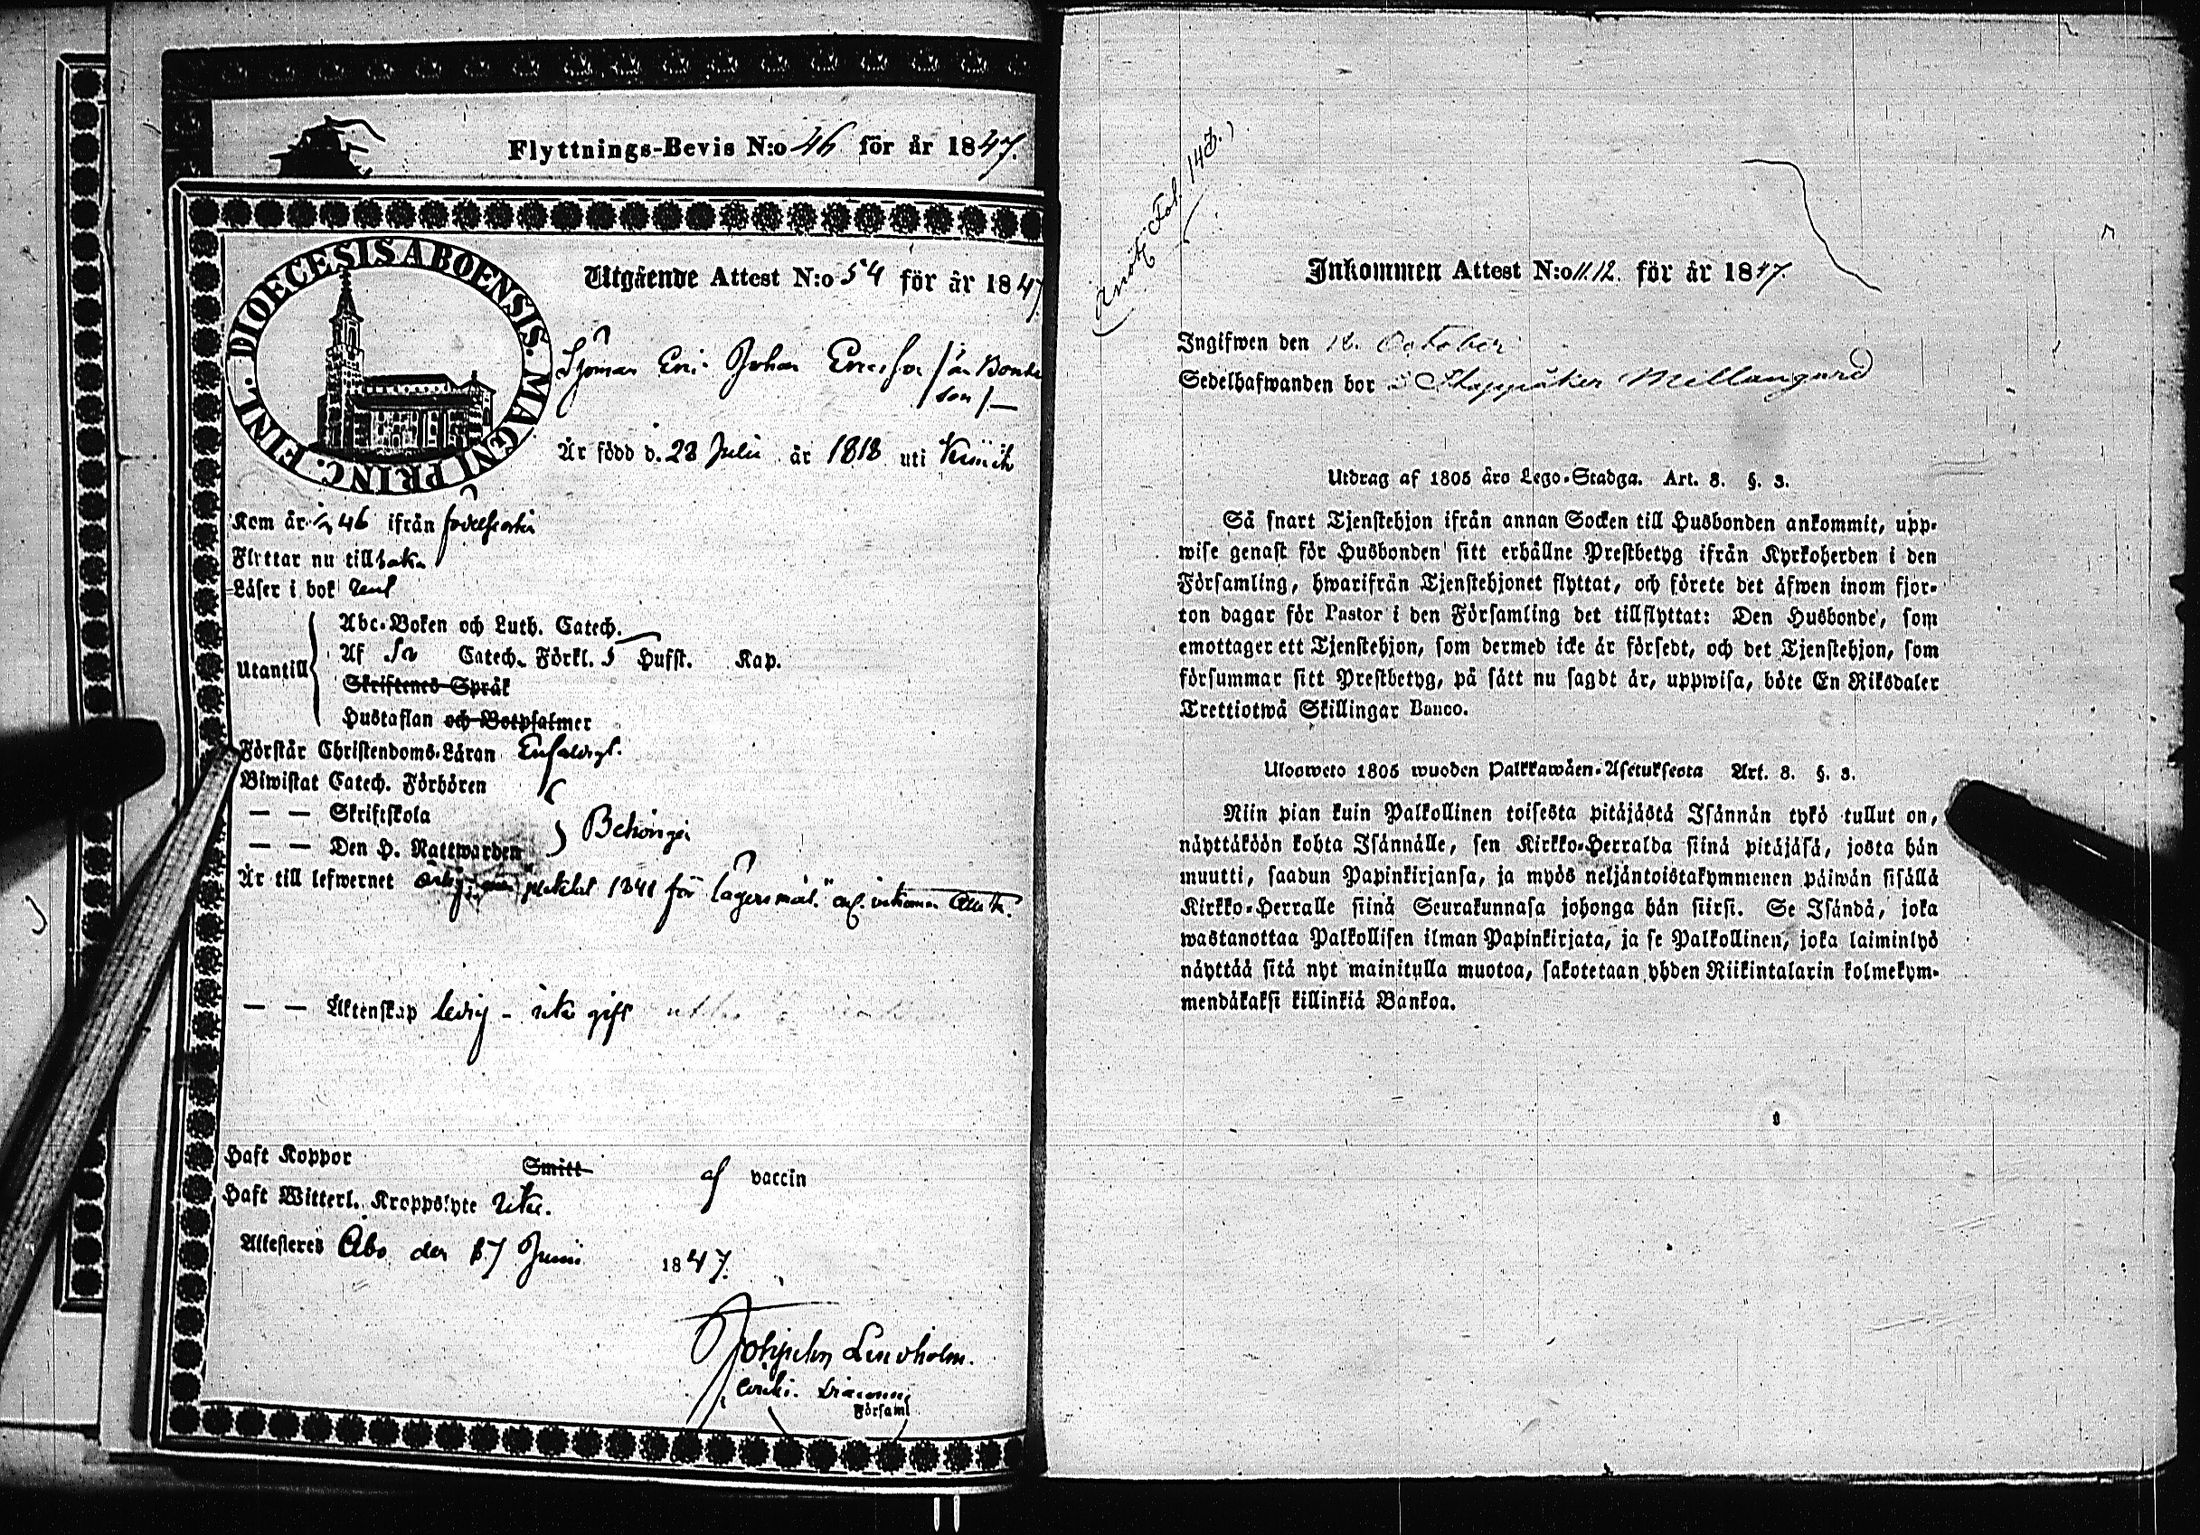 Flyttnings-Bevis N:o 46 för år 1847.
DIOECESIS ABOENSIS. MAGNI PRINC. FINL.
Utgående Attest N:o 54 för år 1847
Johan
Är född d. 28 Julii år 1818 uti
Kom år 46 ifrån
Flyttar nu tillbaka
Läser i bok
Utantill
Abc-Boken och Luth. Catech.
Af Catech. Förkl. Husst. Kap.
Skriftenes Språk
Hustaflan och Botpsalmer
Förstår Christendoms-Läran Enfaldigt.
Biwistat Catech. Förhören
— — Skriftskola
— — Den H. Nattwarden
Behörigen
Är till lefwernet 1841 för lägersmål.
— — Äktenskap ledig - icke gift
Haft Koppor Smitt af vaccin
Haft Witterl. Kroppslyte Icke.
Attesteras Åbo den 17 Junii 1847.
Lindholm.
Församl
Fol. 143.
Inkommen Attest N:o 11.12. för år 1847.
Ingifwen den 12. October
Sedelhafwanden bor Mellangård
Utdrag af 1805 års Lego-Stadga. Art. 8. §. 3.
Så snart Tjenstehjon ifrån annan Socken till Husbonden ankommit, upp-
wise genast för Husbonden sitt erhållne Prestbetyg ifrån Kyrkoherden i den
Församling, hwarifrån Tjenstehjonet flyttat, och förete det äfwen inom fjor-
ton dagar för Pastor i den Församling det tillflyttat: Den Husbonde, som
emottager ett Tjenstehjon, som dermed icke är försedt, och det Tjenstehjon, som
försummar sitt Prestbetyg, på sätt nu sagdt är, uppwisa, böte En Riksdaler
Trettiotwå Skillingar Banco.
Ulosweto 1805 wuoden Palkkawäen-Asetuksesta Art. 8. §. 3.
Niin pian kuin Palkollinen toisesta pitäjästä Isännän tykö tullut on,
näyttäköön kohta Isännälle, sen Kirkko-Herralda siinä pitäjäsä, josta hän
muutti, saadun Papinkirjansa, ja myös neljäntoistakymmenen päiwän sisällä
Kirkko-Herralle siinä Seurakunnasa johonga hän siirsi. Se Isändä, joka
wastanottaa Palkollisen ilman Papinkirjata, ja se Palkollinen, joka laiminlyö
näyttää sitä nyt mainitulla muotoa, sakotetaan yhden Riikintalarin kolmekym-
mendäkaksi killinkiä Bankoa.